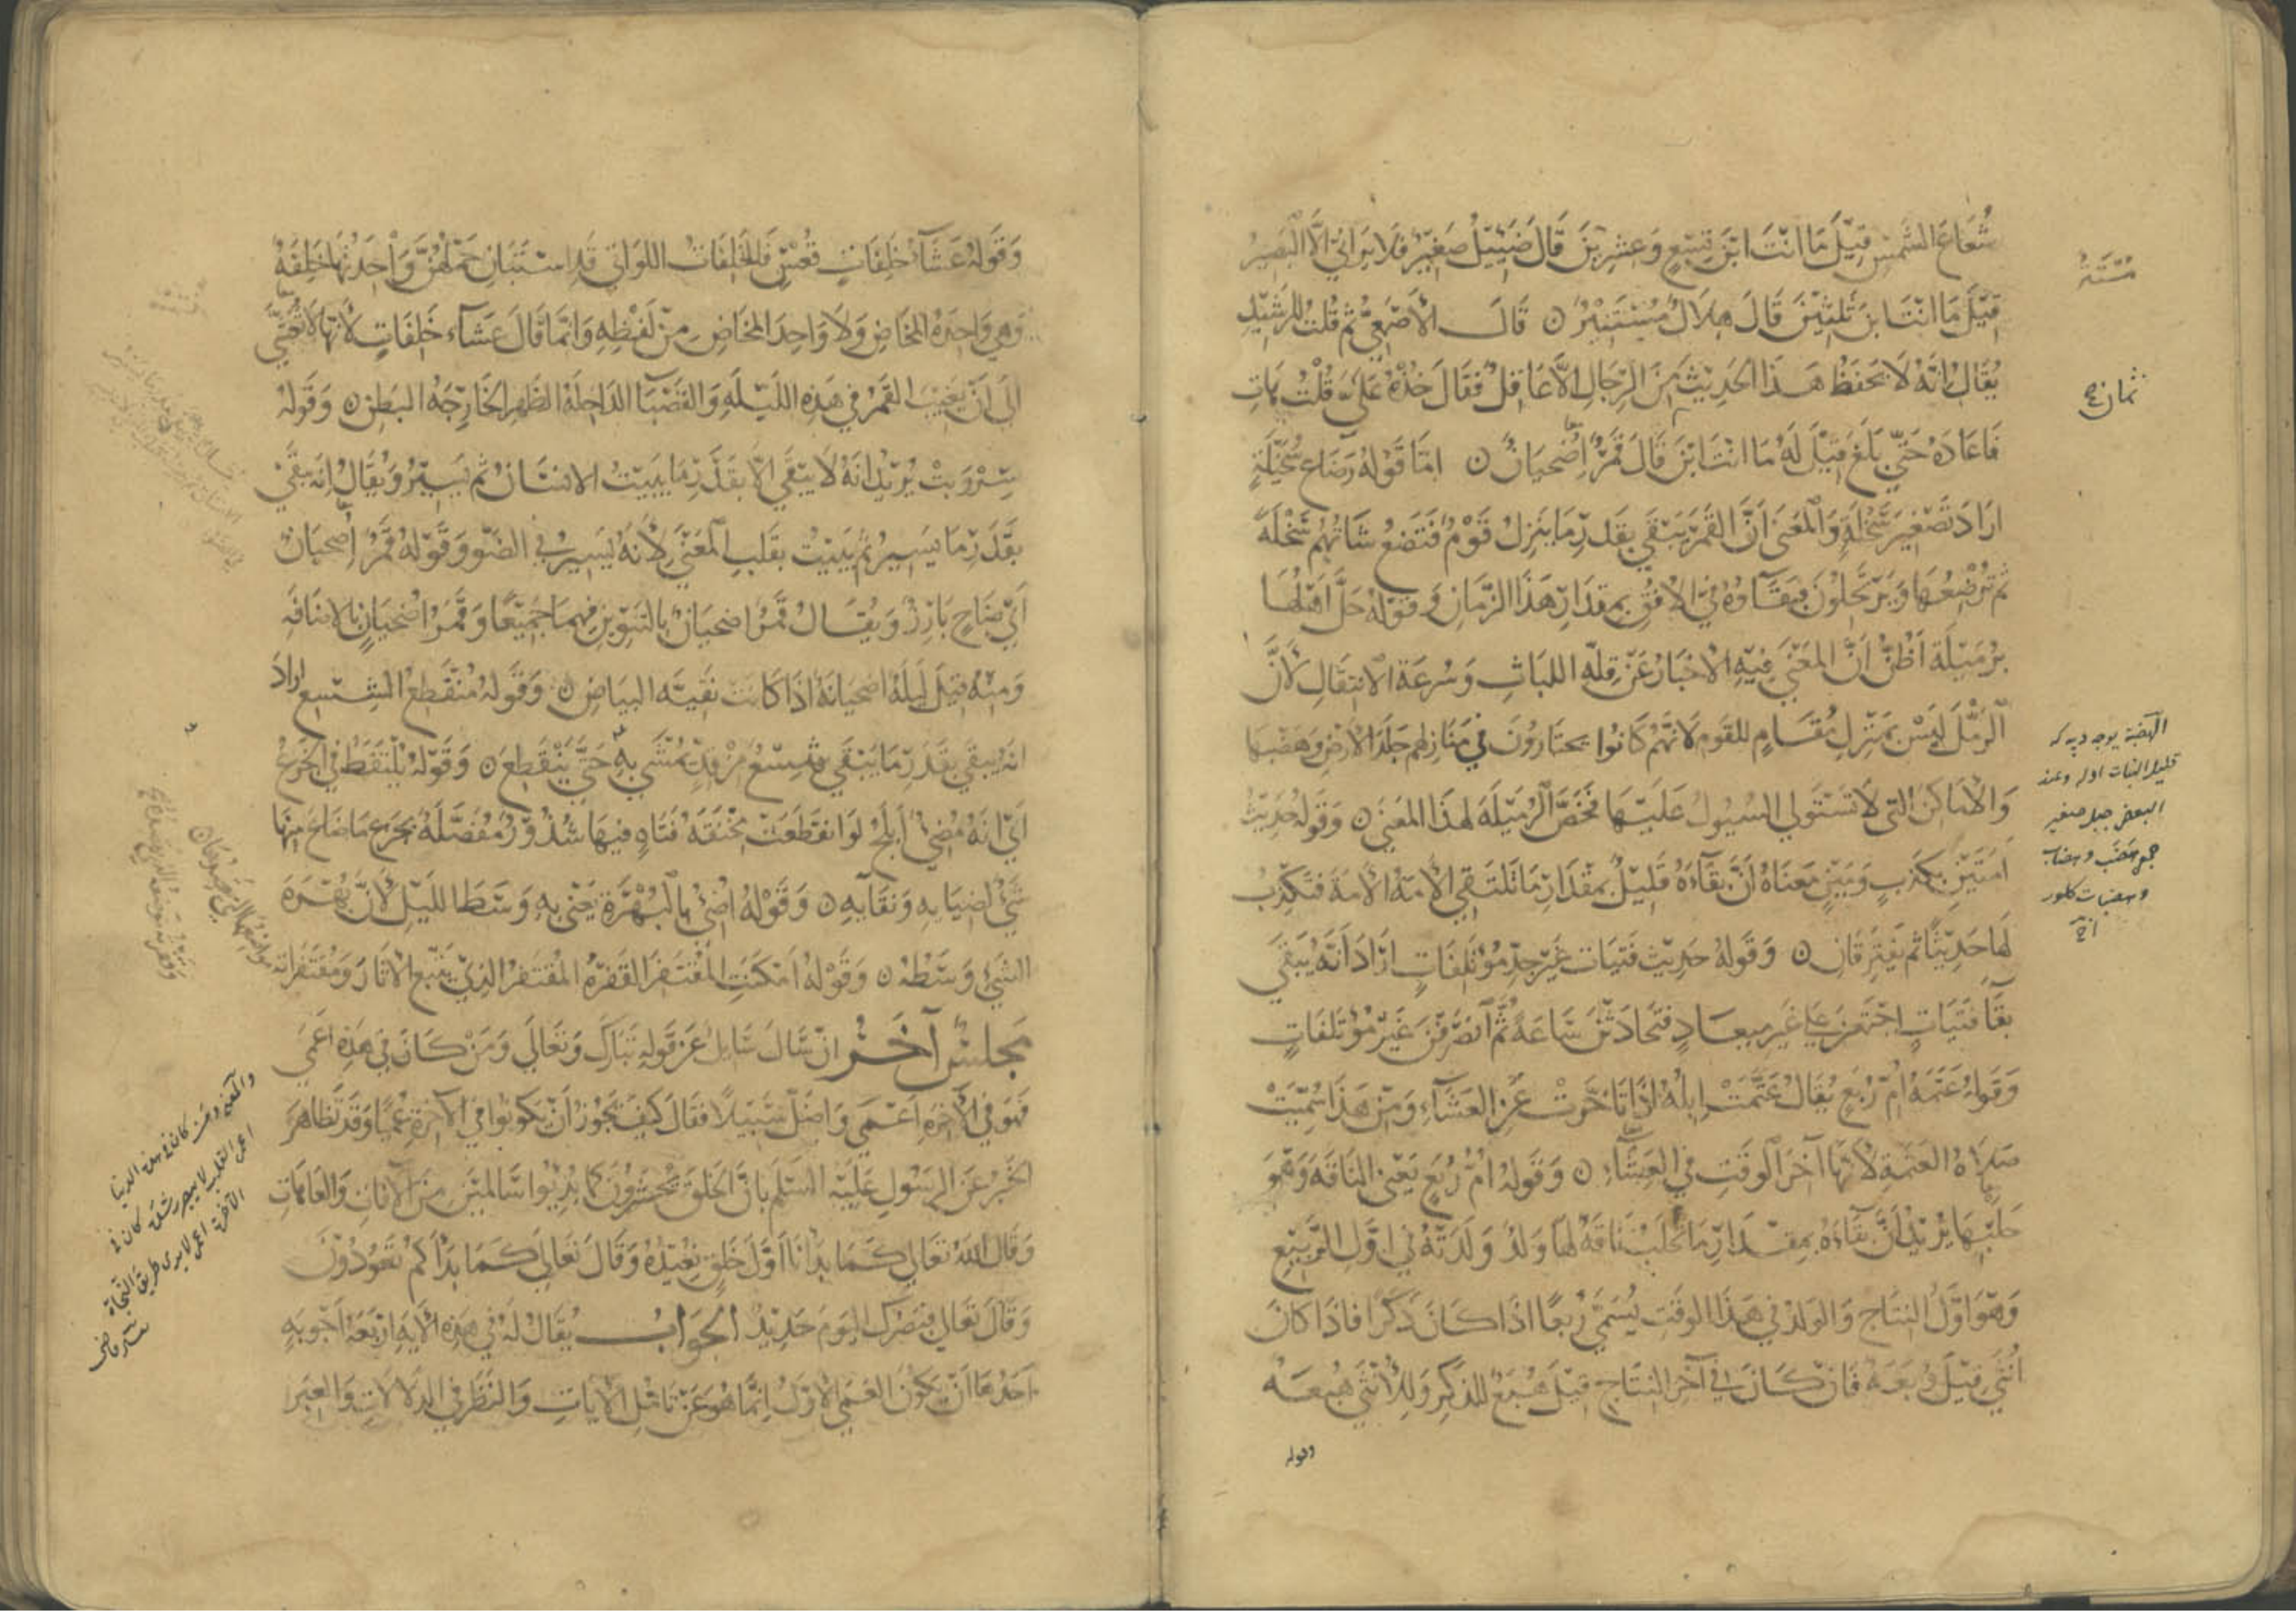 شُعَاعَ الشَّمْسِ قِيْلَ مَا اَنْتَ ابْنَ تِسْعٍ وَعِشْرِيْنَ قَالَ ضَئِيْلٌ صَغِيْرٌ فَلَا يَرَانِي اِلَّا الْبَصِيْرُ
قِيْلَ مَا اَنْتَ ابْنَ ثَلٰثِيْنَ قَالَ هِلَالٌ مُسْتَنِيْرٌ ۝ قَالَ الْاَصْمَعِيُّ ثُمَّ قُلْتُ لِلرَّشِيْدِ
يُقَالُ اِنَّهُ لَا يَحْفَظُ هَذَا الْحَدِيْثَ مِنَ الرِّجَالِ اِلَّا عَاقِلٌ فَقَالَ خُذْهُ عَلَيَّ قُلْتُ هَاتِ
فَاَعَادَهُ حَتَّى بَلَغَ قِيْلَ لَهُ مَا اَنْتَ ابْنَ قَالَ قَمَرٌ اِضْحِيَانٌ ۝ اَمَّا قَوْلُهُ رَضَاعُ سُخَيْلَةٍ
اَرَادَ تَصْغِيْرَ سَخْلَةٍ وَالْمَعْنَى اَنَّ الْقَمَرَ يَبْقَى بِقَدْرِ مَا يَنْزِلُ قَوْمٌ فَتَضَعُ شَاتُهُمْ سَخْلَةً
ثُمَّ تُرْضِعُهَا وَيَرْتَحِلُوْنَ فَبَقَاؤُهُ فِي الْاُفُقِ بِمِقْدَارِ هَذَا الزَّمَانِ وَقَوْلُهُ حَلَّ اَهْلُهَا
بِرُمَيْلَة اَظُنُّ اَنَّ الْمَعْنَى فِيْهِ الْاِخْبَارُ عَنْ قِلَّةِ اللبَاثِ وَسُرْعَةِ الْاِنْتِقَالِ لِاَنَّ
الرَّمْلَ لَيْسَ بِمَنْزِلِ مُقَامٍ لِلْقَوْمِ لِاَنَّهُمْ كَانُوا يَخْتَارُوْنَ فِي مَنَازِلِهِمْ جَلَدَ الْاَرْضِ وَهَضْبَهَا
وَالْاَمَاكِنَ الَّتِي لَا تَسْتَوْلِي السُّيُوْلُ عَلَيْهَا فَخَصَّ الرُّمَيْلَةَ لِهَذَا الْمَعْنَى ۝ وَقَوْلُهُ حَدِيْثُ
اَمَتَيْنِ بِكَذِبٍ وَمَيْنٍ مَعْنَاهُ اَنَّ بَقَآءَهُ قَلِيْلٌ بِمِقْدَارِ مَا تَلْتَقِي الْاَمَةُ الْاَمَةَ فَتَكْذِبُ
لَهَا حَدِيْثًا ثُمَّ يَفْتَرِقَانِ ۝ وَقَوْلُهُ حَدِيْثُ فَتَيَات غَيْرِ جِدِّ مُؤْتَلِفَاتٍ اَرَادَ اَنَّهُ يَبْقَى
بَقَآ فَتَيَاتٍ اجْتَمَعْنَ عَلَى غَيْرِ مِيْعَادٍ فَتَحَادَثْنَ سَاعَةً ثُمَّ انْصَرَفْنَ غَيْرَ مُؤْتَلِفَاتٍ
وَقَوْلُهُ عَتَمَةُ اُمِّ رُبَعٍ يُقَالُ عَتَمَتْ اِبِلُهُ اِذَا تَاَخَّرَتْ عَنِ الْعَشَآءِ وَمِنْ هَذَا سُمِّيَتْ
صَلَاةُ الْعَتَمَةِ لِاَنَّهَا آخِرُ الْوَقْتِ فِي الْعِشَآءِ ۝ وَقَوْلُهُ اُمُّ رُبَعٍ يَعْنِي النَّاقَةَ وَهُوَ
حَلْبُهَا يُرِيْدُ اَنَّ بَقَاءَهُ بِمِقْدَارِ مَا تُحْلَبُ نَاقَةٌ لَهَا وَلَدٌ وَلَدَتْهُ فِي اَوَّلِ الرَّبِيْعِ
وَهُوَ اَوَّلُ النِّتَاجِ وَالْوَلَدُ فِي هَذَا الْوَقْتِ يُسَمَّى رُبَعًا اِذَا كَانَ ذَكَرًا فَاِذَا كَانَ
اُنْثَى قِيْلَ رُبَعَة فَاِنْ كَانَ فِي آخِرِ النِّتَاجِ قِيْلَ هُبَعٌ لِلذَّكَرِ وَلِلْاُنْثَى هُبَعَة
وقوله
ثمان
الهضبة
قليل النبات
البعض جبل صغير
جمع هضب وهضاب
وهضبات
وَقَوْلُهُ عَشَآءُ خَلِفَاتٍ قُعْسٍ فَالْخَلِفَاتُ اللَّوَاتِي قَدِ اسْتَبَانَ حَمْلُهُنَّ وَاحِدَتُهَا خَلِفَةٌ
وَهِيَ وَاحِدَةُ الْمَخَاضِ وَلَا وَاحِدَ لِلْمَخَاضِ مِنْ لَفْظِهِ وَاِنَّمَا قَالَ عَشَآءُ خَلِفَاتٍ لِاَنَّهَا لَا تُعَشَّى
اِلَى اَنْ يَغِيْبَ الْقَمَرُ فِي هَذِهِ اللَّيْلَةِ وَالْقَعْسَا الدَّاخِلَةُ الظَّهْرِ الْخَارِجَةُ الْبَطْنِ ۝ وَقَوْلُهُ
سِرْ وَبِتْ يُرِيْدُ اَنَّهُ لَا يَبْقَى اِلَّا بِقَدْرِ مَا يَبِيْتُ الْاِنْسَانُ ثُمَّ يَسِيْرُ وَيُقَالُ اِنَّهُ يَبْقَى
بِقَدْرِ مَا يَسِيْرُ ثُمَّ يَبِيْتُ بِقَلْبِ الْمَعْنَى لِاَنَّهُ يَسِيْرُ فِي الضَّوْءِ وَقَوْلُهُ قَمَرٌ اِضْحِيَانٌ
اَيْ ضَاحٍ بَارِزٌ وَيُقَالُ قَمَرٌ اِضْحِيَانٌ بِالتَّنْوِيْنِ فِيْهِمَا جَمِيْعًا وَقَمَرُ اِضْحِيَانٍ بِالْاِضَافَة
وَمِنْهُ قِيْلَ لَيْلَةٌ اِضْحِيَانَة اِذَا كَانَتْ نَقِيَّة الْبَيَاضِ ۝ وَقَوْلُهُ مُنْقَطِعُ الشِّسْعِ اَرَادَ
اَنَّهُ يَبْقَى بِقَدْرِ مَا يَبْقَى شِسْعٌ مِنْ قِدٍّ يُمْشَى بِهِ حَتَّى يَنْقَطِعَ ۝ وَقَوْلُهُ يُلْتَقَطُ فِي الْجَزْعُ
اَيْ اَنَّهُ مُضِيءٌ اَبْلَجُ لَوِ انْقَطَعَتْ مِخْنَقَة فَتَاةٍ فِيْهَا شُذُوْرٌ مُفَصَّلَةٌ بِجَزْعٍ مَا ضَاعَ مِنْهَا
شَيْءٌ لِضِيَايِهِ وَنَقَآيِهِ ۝ وَقَوْلُهُ اُضِيْءُ بِالْبُهْرَةِ يَعْنِي بِهِ وَسَطَ اللَّيْلِ لِاَنَّ بُهْرَةَ
الشَّيْءِ وَسَطُهُ ۝ وَقَوْلُهُ اَمْكَنَتِ الْمُقْتَفِرَ الْقَفْرَةُ الْمُقْتَفِرُ الَّذِيْ يَتَّبِعُ الْآثَارَ وَمُقْتَفَرَاتُه
مَجْلِسٌ آخَرُ اِنْ سَاَلَ سَايِلٌ عَنْ قَوْلِهِ تَبَارَكَ وَتَعَالَى وَمَنْ كَانَ فِي هَذِهِ اَعْمَى
فَهُوَ فِي الْآخِرَةِ اَعْمَى وَاَضَلُّ سَبِيْلًا فَقَالَ كَيْفَ يَجُوْزُ اَنْ يَكُوْنُوا فِي الْآخِرَةِ عُمْيًا وَقَدْ تَظَاهَرَ
الْخَبَرُ عَنِ الرَّسُوْلِ عَلَيْهِ السَّلٰمُ بِاَنَّ الْخَلْقَ يُحْشَرُوْنَ كَمَا بُدِئُوا سَالِمِيْنَ مِنَ الْآفَاتِ وَالْعَاهَاتِ
وَقَالَ اللهُ تَعَالَى كَمَا بَدَاْنَا اَوَّلَ خَلْقٍ نُعِيْدُهُ وَقَالَ تَعَالَى كَمَا بَدَاَكُمْ تَعُوْدُوْنَ
وَقَالَ تَعَالَى فَبَصَرُكَ الْيَوْمَ حَدِيْدٌ الْجَوَابُ يُقَالُ لَهُ فِي هَذِهِ الْآيَةِ اَرْبَعَةُ اَجْوِبَةٍ
اَحَدُهَا اَنْ يَكُوْنَ الْعَمَى الْاَوَّلُ اِنَّمَا هُوَ عَنْ تَاَمُّلِ الْآيَاتِ وَالنَّظَرِ فِي الدَّلَالَاتِ وَالْعِبَرِ
مواضعها التي
والمعنى ومن كان في هذه الدنيا
اعمى القلب لا يبصر رشده كان في
الآخرة اعمى لا يرى طريق النجاة